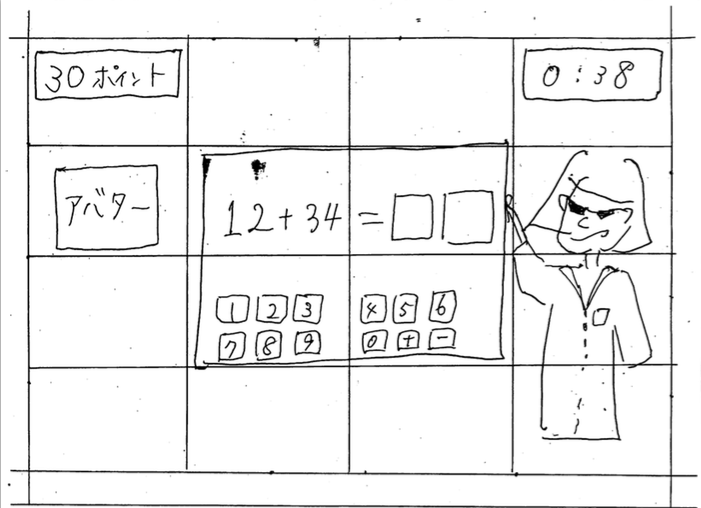 30ポイント
0:38
アバター
12+34=
1 2 3 4 5 6
7 8 9 0 + -